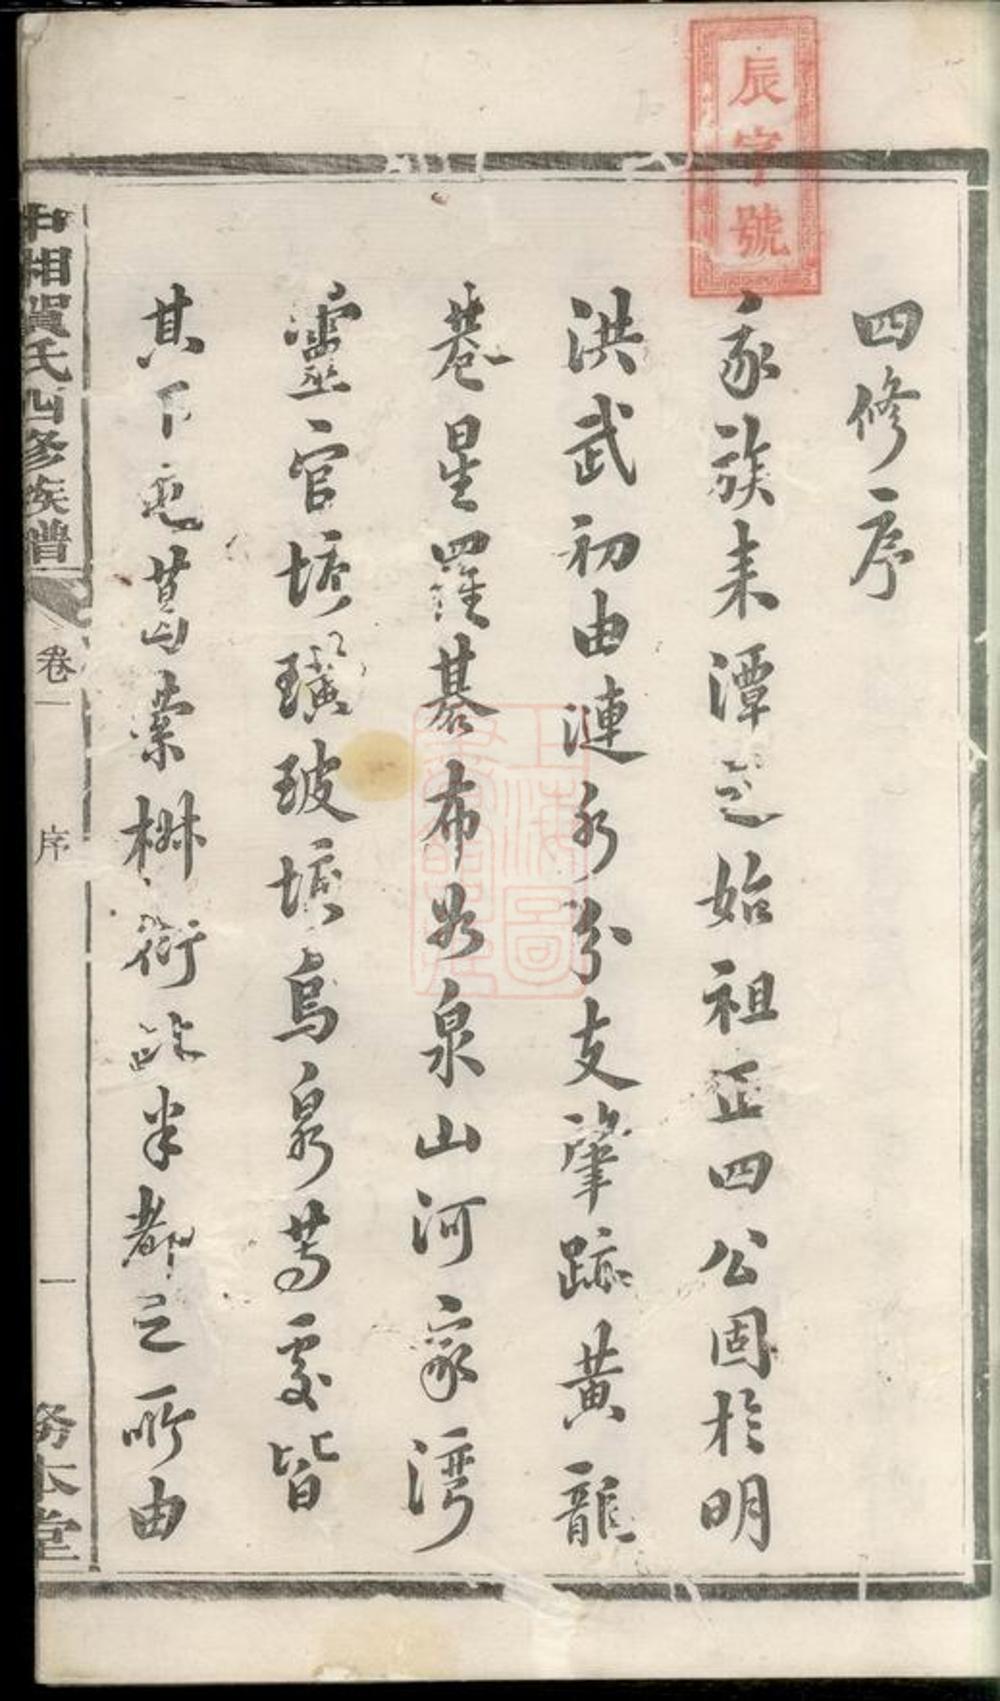 辰字號
四修序
家族來潭之始祖正四公固於明
洪武初由漣水分支肇跡黃龍
巷星羅碁布如泉山河家灣
靈官塆璜玻塘烏泉等處皆
其下也葛藟椒衍歷來都之所由
中湘賀氏四修族譜
卷一
序
一
務本堂
上海圖